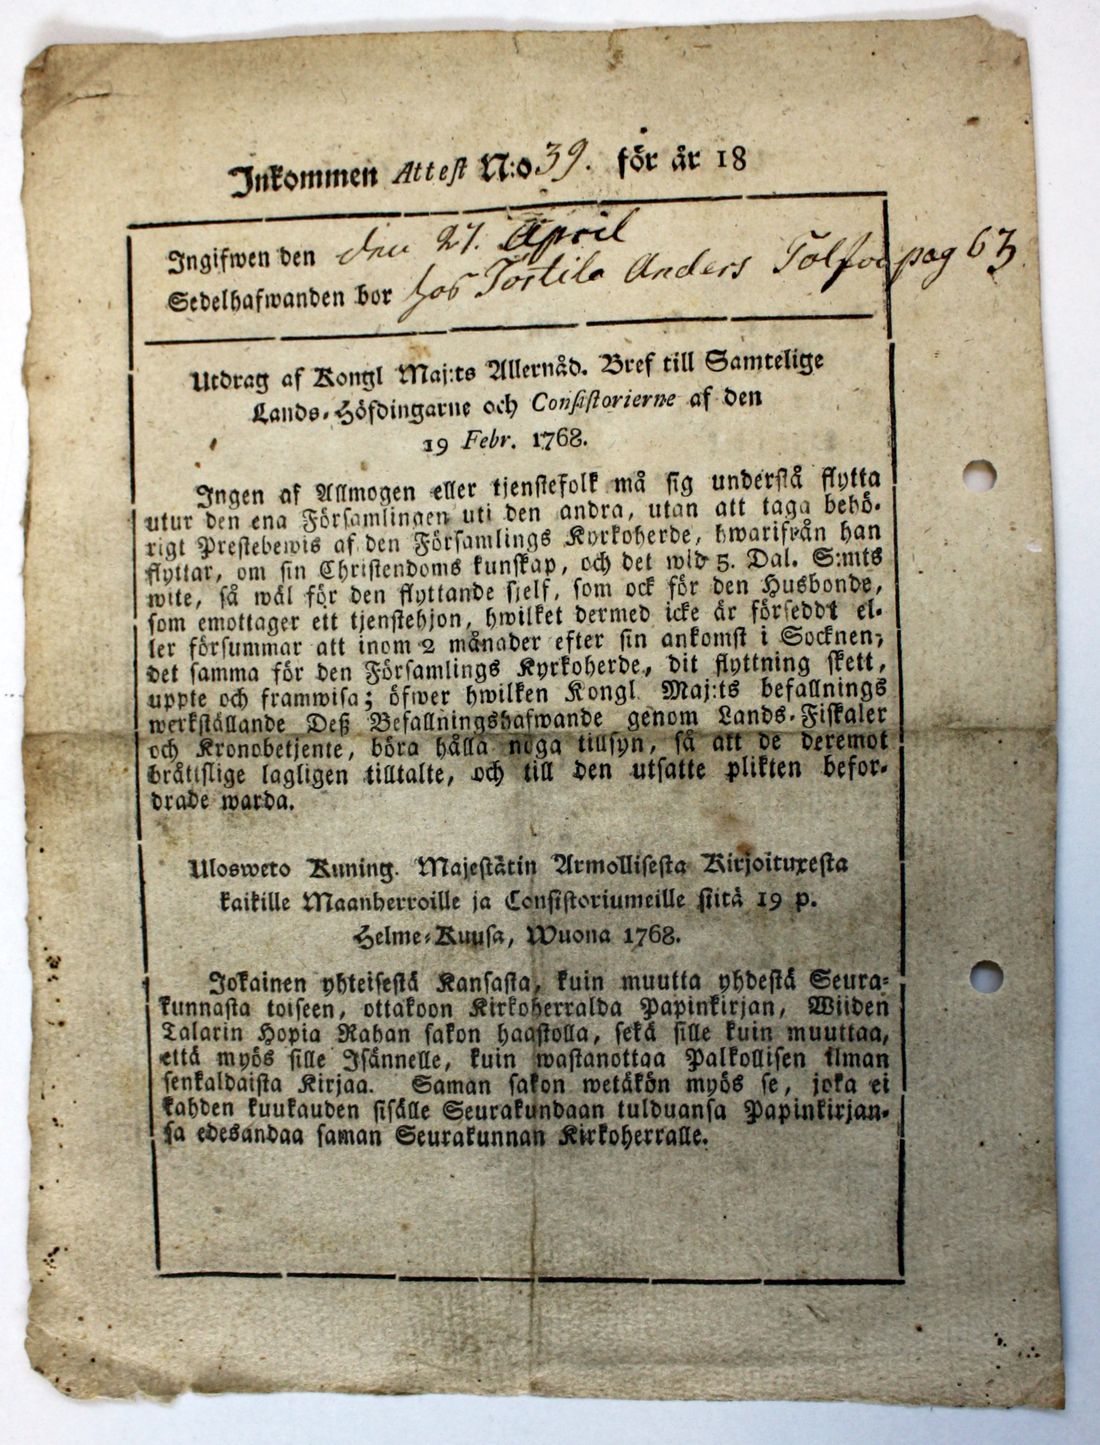 Inkommen Attest N:o 39. för år 18
Ingifwen den den 27. April
Sedelhafwanden bor hos Tortila Anders Tolfoe pag 63
Utdrag af Kongl Maj:ts Allernåd. Bref till Samtelige
Lands-Höfdingarne och Consistorierne af den
19 Febr. 1768.
Ingen af Allmogen eller tjenstefolk må sig understå flytta
utur den ena Församlingen uti den andra, utan att taga behö-
rigt Prestebewis af den Församlings Kyrkoherde, hwarifrån han
flyttar, om sin Christendoms kunskap, och det wid 5. Dal. S:mts
wite, så wäl för den flyttande sjelf, som ock för den Husbonde,
som emottager ett tjenstehjon, hwilket dermed icke är förseddt el-
ler försummar att inom 2 månader efter sin ankomst i Socknen,
det samma för den Församlings Kyrkoherde, dit flyttning skett,
uppte och framwisa; öfwer hwilken Kongl Maj:ts befallnings
werkställande Deß Befallningshafwande genom Lands-Fiskaler
och Kronobetjente, böra hålla noga tillsyn, så att de deremot
bråttslige lagligen tilltalte, och till den utsatte plikten befor-
drade warda.
Ulosweto Kuning. Majestätin Armollisesta Kirjoituxesta
kaikille Maanherroille ja Consistoriumeille siitä 19 p.
Helme-Kuusa, Wuona 1768.
Jokainen yhteisestä Kansasta, kuin muutta yhdestä Seura-
kunnasta toiseen, ottakoon Kirkoherralda Papinkirjan, Wiiden
Talarin Hopia Rahan sakon haastolla, sekä sille kuin muuttaa,
että myös sille Isännelle, kuin wastanottaa Palkollisen ilman
senkaldaista Kirjaa. Saman sakon wetäkön myös se, joka ei
kahden kuukauden sisälle Seurakundaan tulduansa Papinkirjan-
sa edesandaa saman Seurakunnan Kirkoherralle.